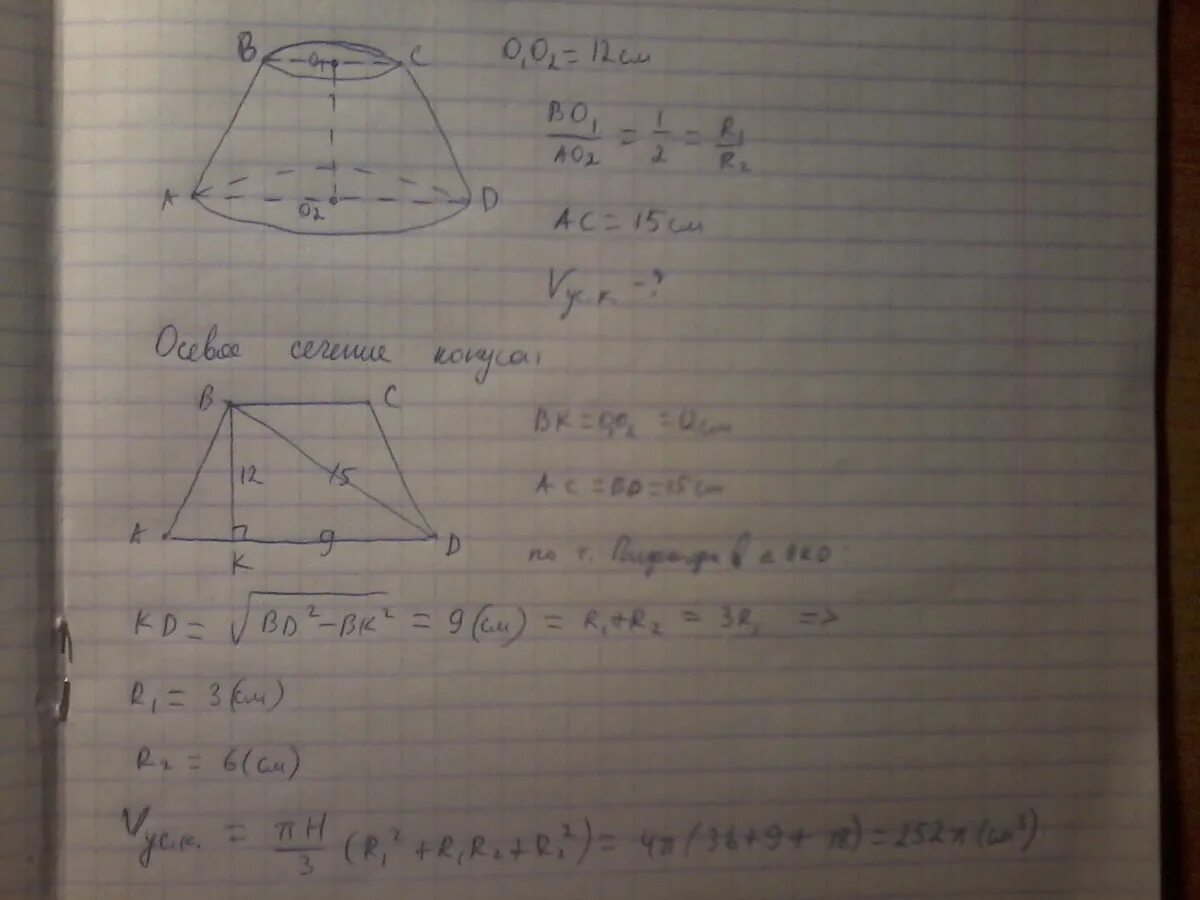 B O₁ C O₁O₂ = 12 см
BO₁/AO₂ = 1/2 = R₁/R₂
A O₂ D
AC = 15 см
Vус.к. - ?
Осевое сечение конуса:
B C
BK = O₁O₂ = 12 см
12 15
AC = BD = 15 см
A K 9 D
по т. Пифагора в △ BKD:
KD = √(BD² - BK²) = 9 (см) = R₁ + R₂ = 3R₁ =>
R₁ = 3 (см)
R₂ = 6 (см)
Vус.к. = πH/3 (R₁² + R₁R₂ + R₂²) = 4π(36 + 9 + 18) = 252π (см³)